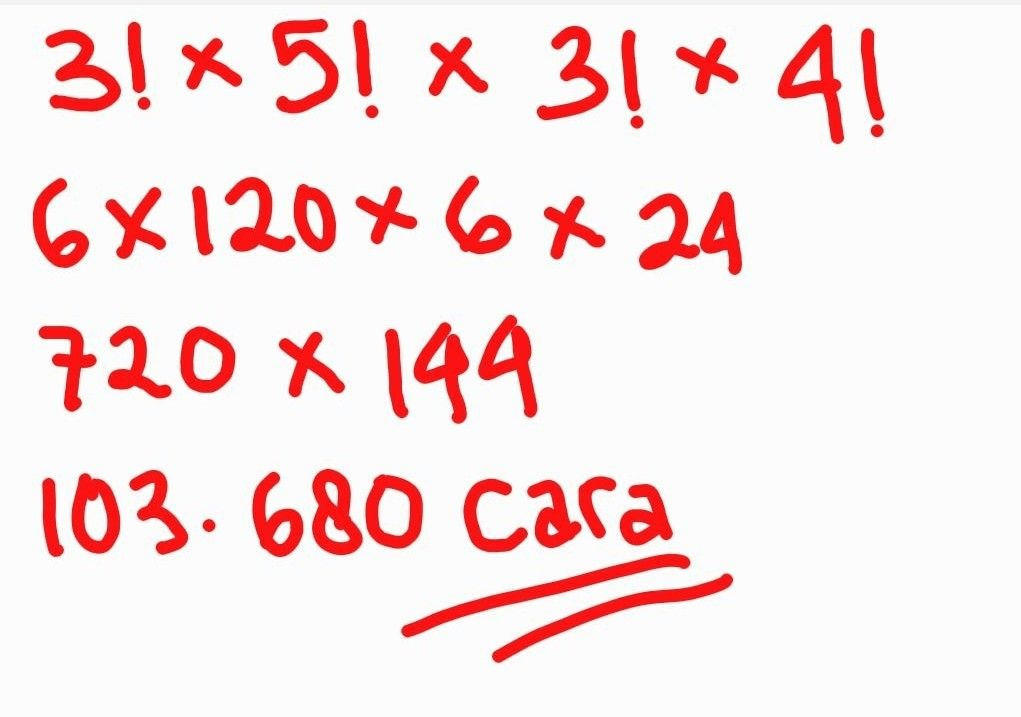 3! × 5! × 3! × 4!
6 × 120 × 6 × 24
720 × 144
103.680 cara